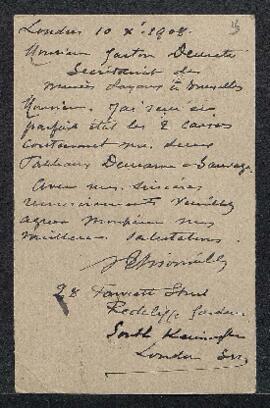 London 10 X 1908.
Monsieur Gaston
Secrétariat des
Musées Royaux à Bruxelles
Monsieur. J'ai reçu en
parfait état les 2 caisses
contenant mes deux
Tableaux Dewame - Sauvage.
Avec mes sincères
remerciements veuillez
agréer Monsieur mes
meilleures salutations.
28 Fawcett Street
Redcliffe Gardens
South Kensington
London SW.